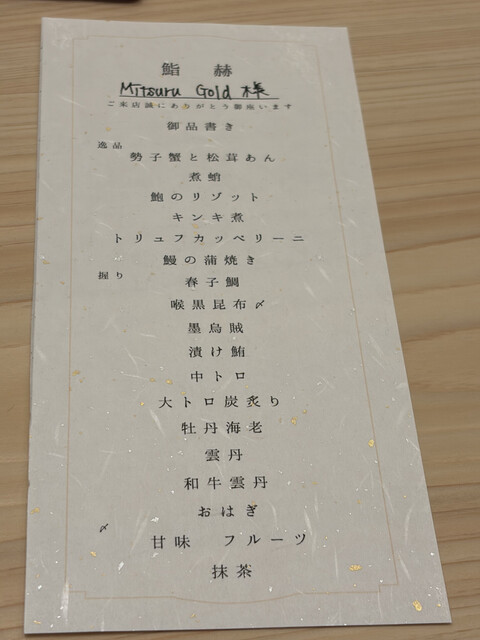 鮨 赫
Mitsuru Gold 様
ご来店誠にありがとう御座います
御品書き
逸品
勢子蟹と松茸あん
煮蛸
鮑のリゾット
キンキ煮
トリュフカッペリーニ
鰻の蒲焼き
握り
春子鯛
喉黒昆布〆
墨烏賊
漬け鮪
中トロ
大トロ炭炙り
牡丹海老
雲丹
和牛雲丹
おはぎ
〆
甘味 フルーツ
抹茶